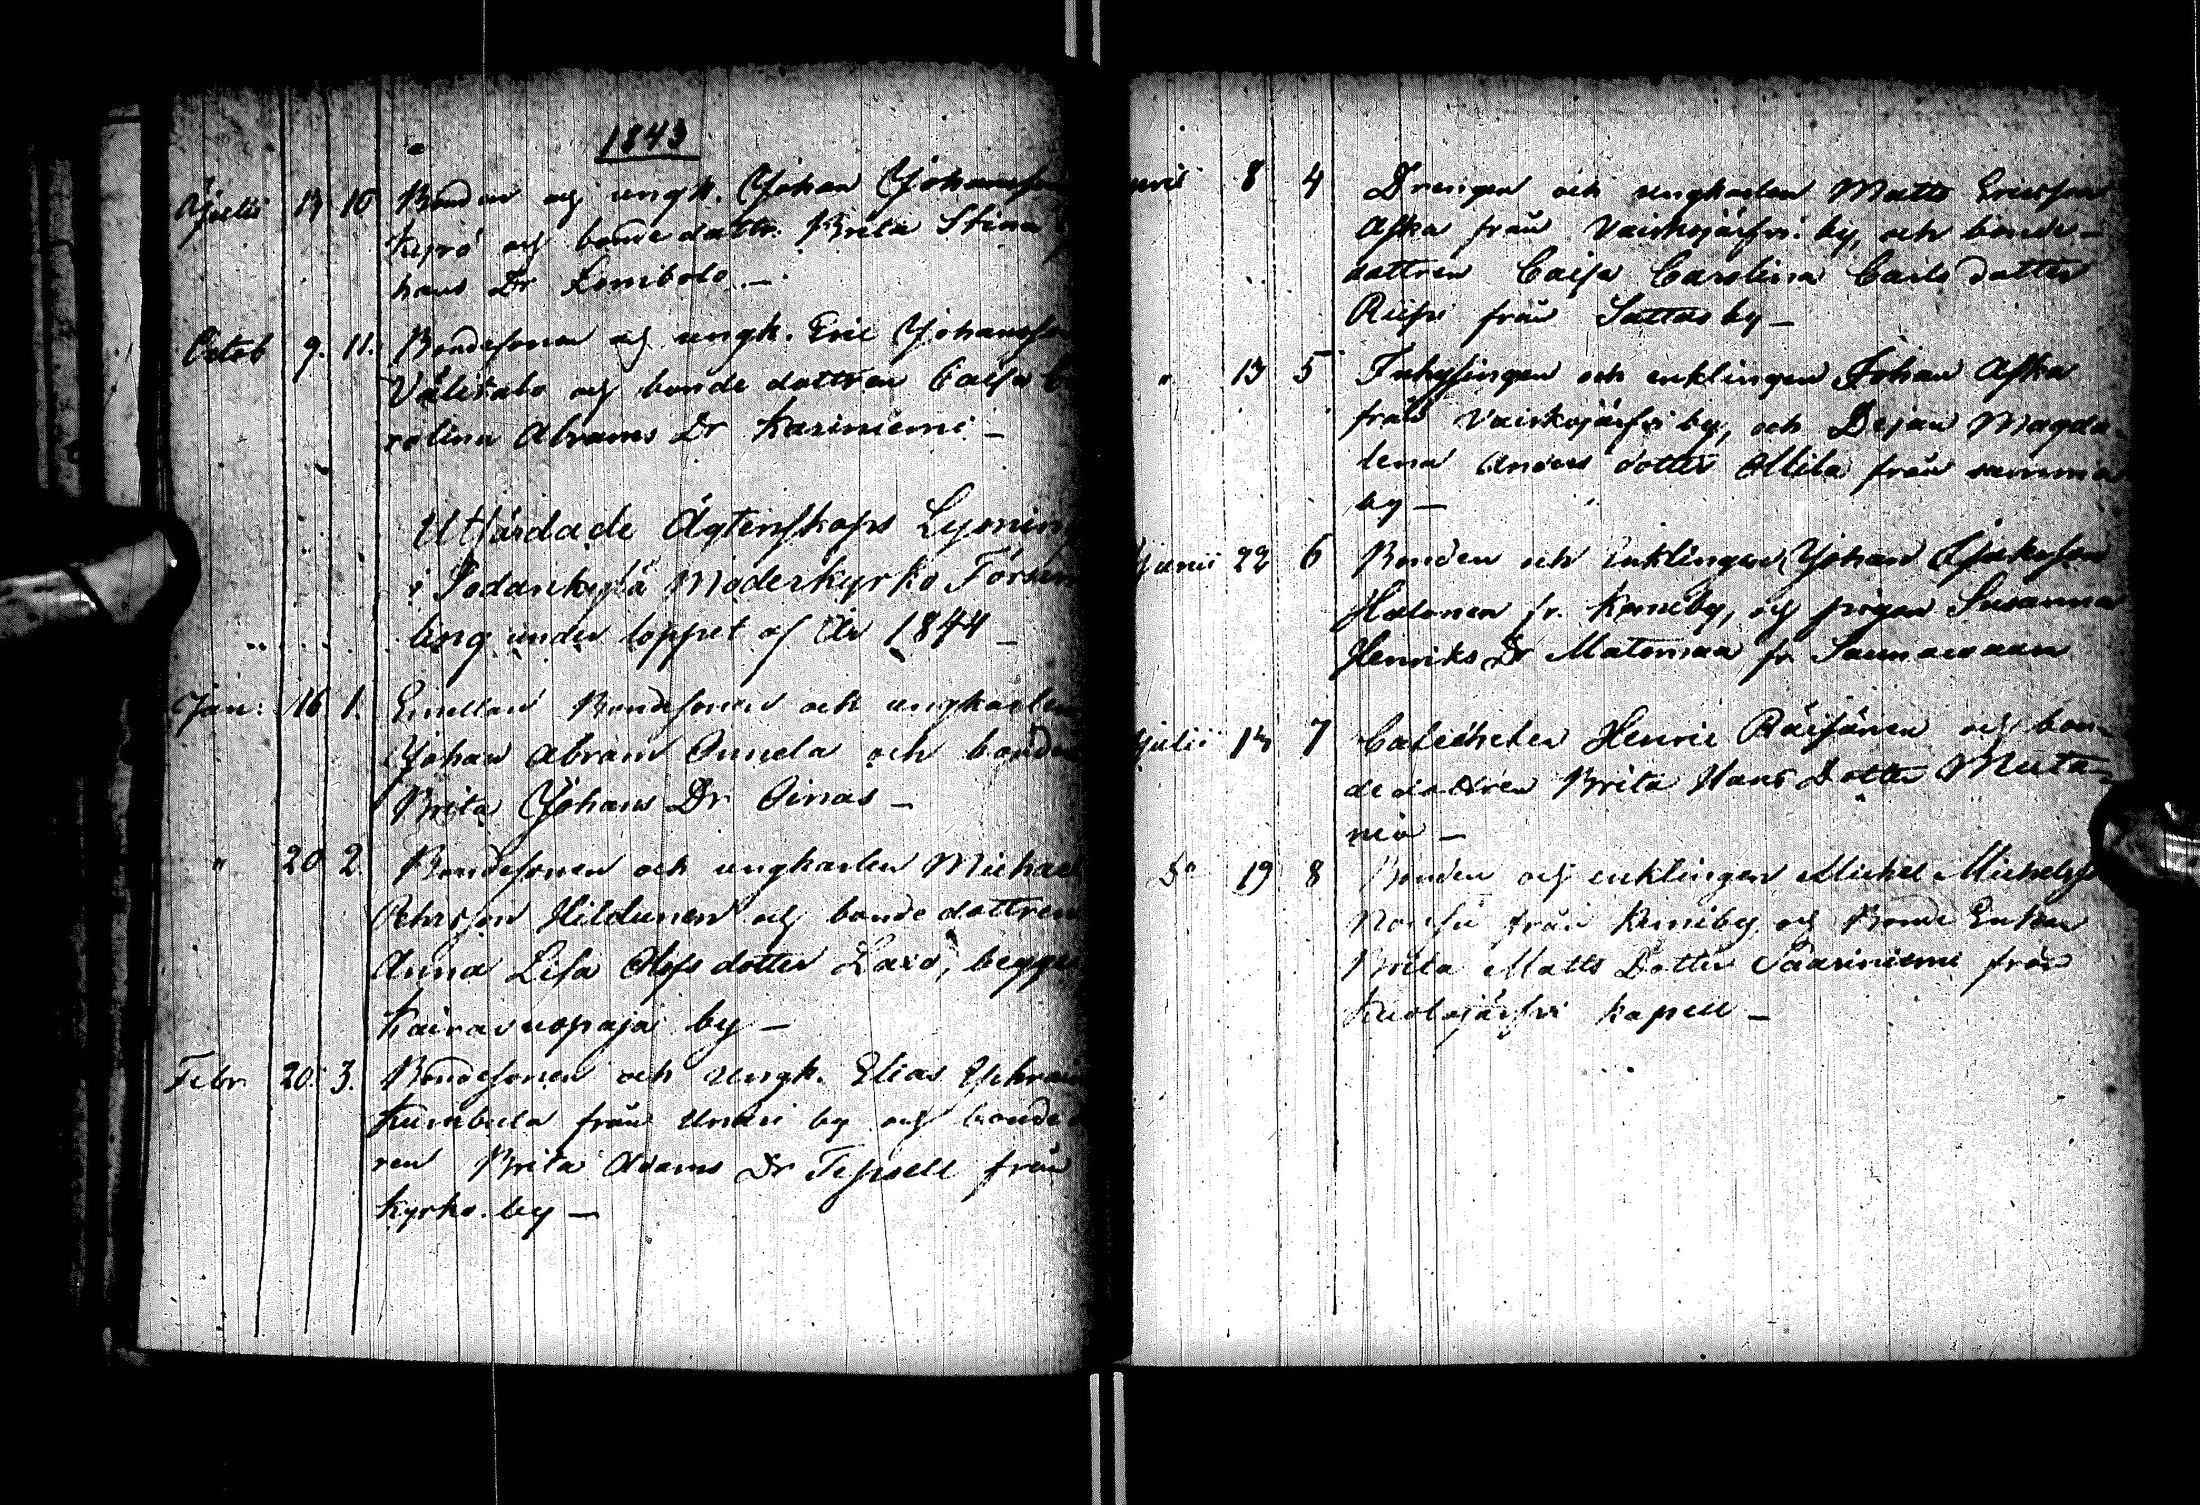 1843
Julii 13 10 Bonden och ungk. Johan Johansson
Kyrö och bonde dottr. Brita Stina
hans Dr Lombolo –
Octob 9. 11. Bondesonen och ungk. Eric Johansson
Välitalo och bonde dottren Caisa Ca
rolina Abrams Dr Kariniemi –
Utfärdade Ägtenskaps Lysning
i Sodankylä Moderkyrko Försam
ling under loppet af År 1844 –
Jan: 16 1. Emellan Bondesonen och ungkarlen
Johan Abram Onnela och bonde
Brita Johans Dr Pinas –
" 20 2. Bondesonen och ungkarlen Michael
Hildunen och bonde dottren
Anna Lisa Olofs dotter begge
Kairavuopaja by –
Febr. 20. 3. Bondesonen och ungk. Elias Ephraim
Kumbula från Unari by och bonde
ren Brita Adams Dr Tepsell från
Kyrko by –
8 4 Drengen och ungkarlen Matts Ericsson
Aska från Vaiskojärfvi by, och bonde–
dottren Caisa Carolina Carls dotter
från Sattas by –
" 13 5 Inhysingen och enklingen Johan Aska
från Vaiskojärfvi by, och Dejan Magda–
lena Anders dotter Allila från samma
by –
Junii 22 6 Bonden och Enklingen Johan
Halonen fr. Kemiby, och pigan Susanna
Henriks Dr Matomaa fr
Julii 13 7 Catecheten Henric Räisänen och bon–
de dottren Brita Hans Dotter Muta–
nia –
Do 19 8 Bonden och enklingen Michel Michelss
från Kemiby och Bonde Enkan
Brita Matts Dotter Saariniemi från
Kuolajärfvi Kapell –